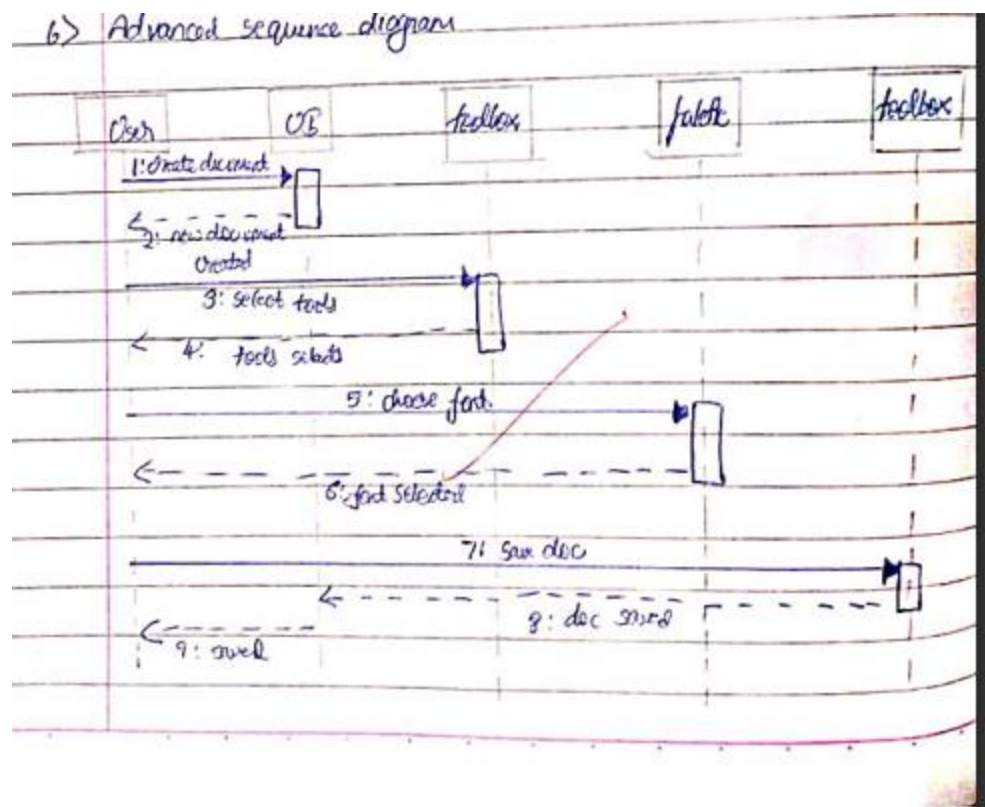 6> Advanced sequence diagram
User
toolbox
toolbox
1: Create document
2: new document
Created
3: select tools
4: tools selects
5: choose font.
6: font selected
7: save doc
8: doc saved
9: saved